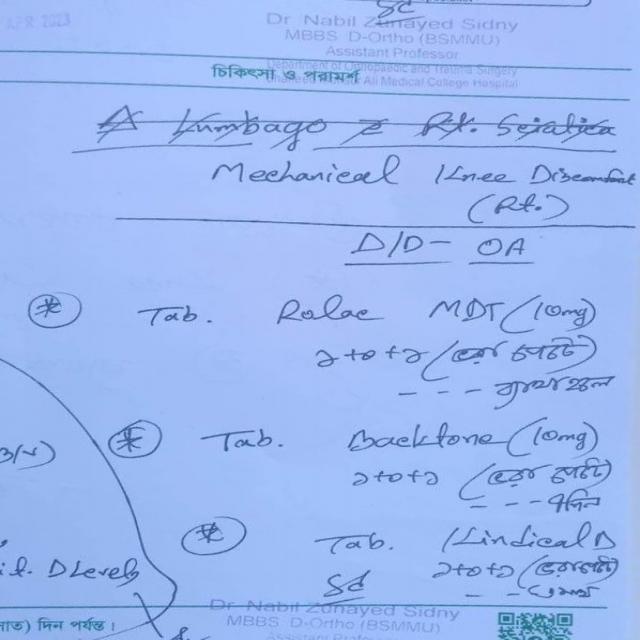 Sd
APR 2023
Dr Nabil Zunayed Sidny
MBBS D-Ortho (BSMMU)
Assistant Professor
Department of Orthopaedic and Trauma Surgery
Ali Medical College Hospital
চিকিৎসা ও পরামর্শ
Lumbago Rt. Sciatica
Mechanical Knee Discomfort
(Rt.)
D/D- OA
Tab. Rolac MDT (10mg)
১+০+১ (ভরা পেটে)
--- ব্যথা হলে
Tab. Backtone (10mg)
১+০+১ (ভরা পেটে)
--- ৭দিন
Tab. D
১+০+১ (ভরা পেটে)
D Level
Sd
Dr Nabil Zunayed Sidny
MBBS D-Ortho (BSMMU)
Assistant
সাত) দিন পর্যন্ত।